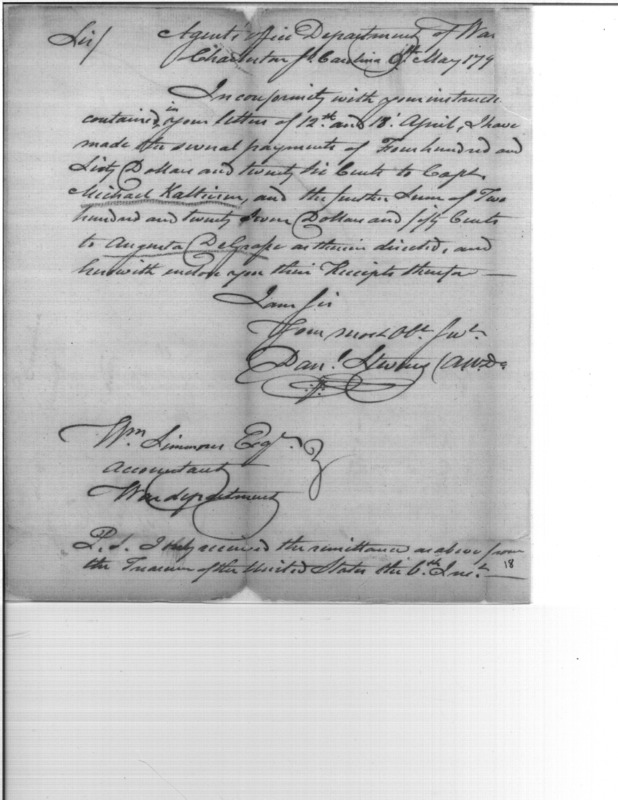 Sir/ Agents office Department of War
Charleston So. Carolina 8th May 179
In conformity with your instruc
contained in your letters of 12th and 18th April, I have
made the several payments of Four hundred and
Sixty Dollars and twenty six Cents to Capt.
Michael Kalteisen, and the further Sum of Two
hundred and twenty seven Dollars and fifty Cents
to Augusta DeGrasse as therein directed, and
herewith enclose you their Receipts therefor
I am Sir
Your most Obt. Svt.
Danl. Stevens (AWD
Wm Simmons Esqr.
Accountant
War department
P.S. I duly received the remittance as above from
the Treasurer of the United States the 6th Inst.
18